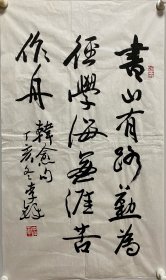 書山有路勤為
徑學海無涯苦
作舟
韓愈句
丁亥冬李